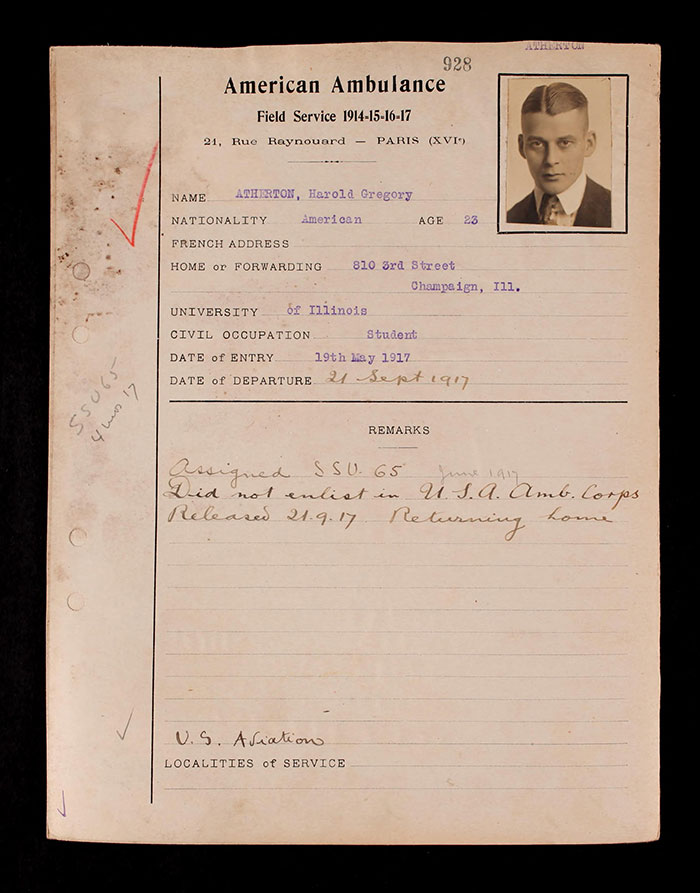 ATHERTON
928
American Ambulance
Field Service 1914-15-16-17
21, Rue Raynouard — PARIS (XVIe)
NAME ATHERTON, Harold Gregory
NATIONALITY American AGE 23
FRENCH ADDRESS
HOME or FORWARDING 810 3rd Street
Champaign, Ill.
UNIVERSITY of Illinois
CIVIL OCCUPATION Student
DATE of ENTRY 19th May 1917
DATE of DEPARTURE 21 Sept 1917
SSU 65
4 mos 17
REMARKS
Assigned SSU. 65 June 1917
Did not enlist in U.S.A. Amb. Corps
Released 21.9.17 Returning home
U.S. Aviation
LOCALITIES of SERVICE